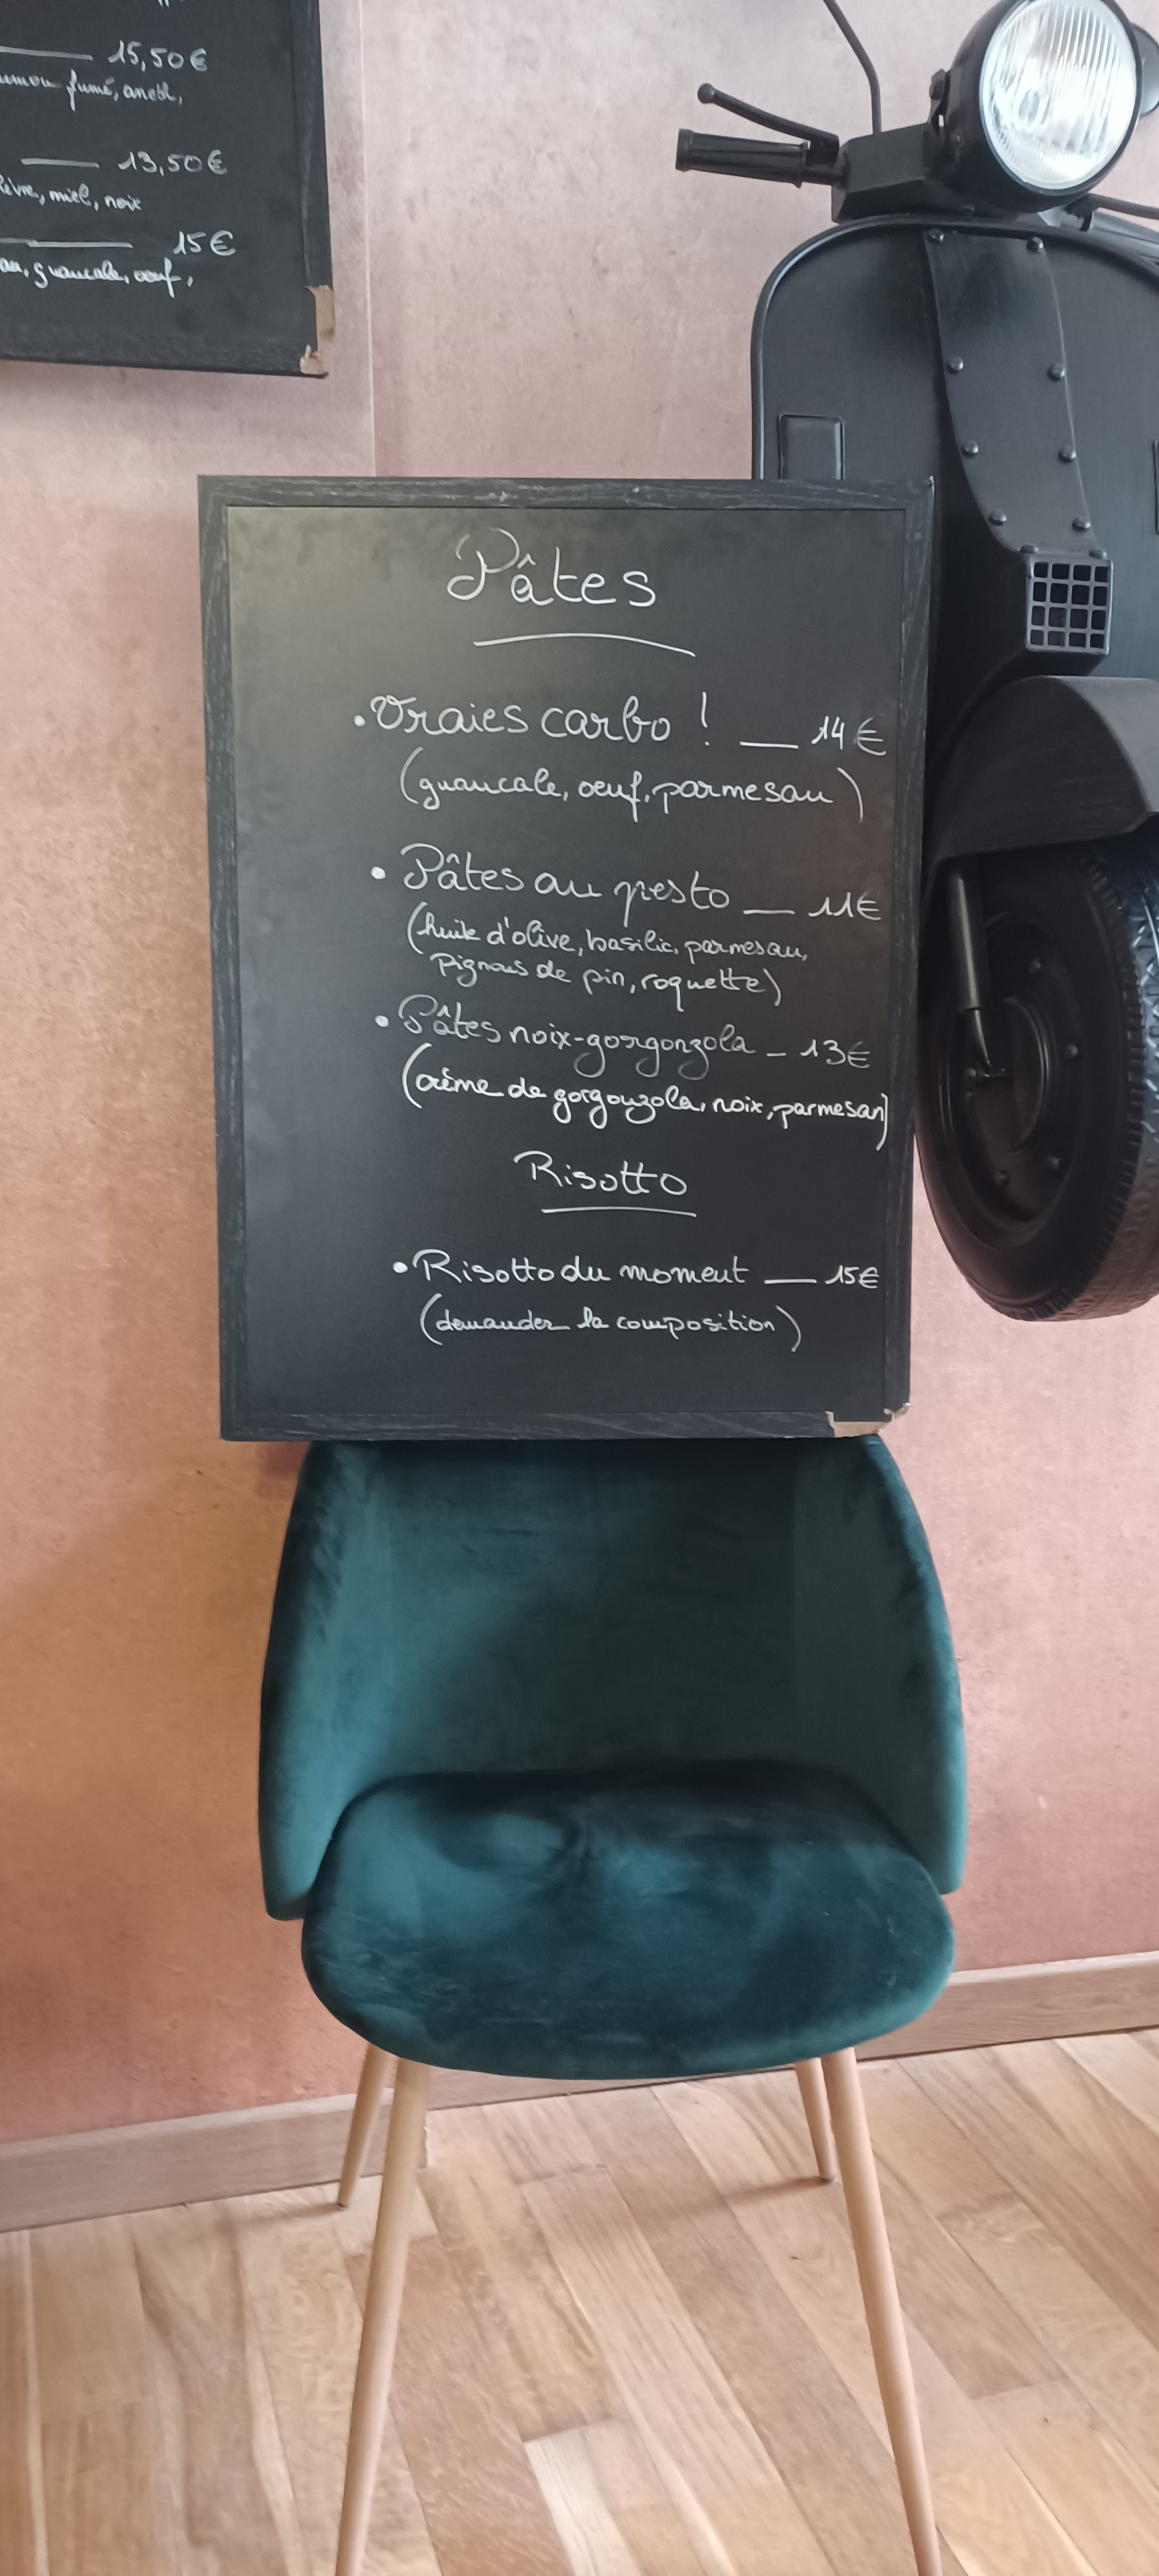 15,50€
fumé, aneth,
13,50€
miel, noix
15€
guancale, oeuf,
Pâtes
• Vraies carbo ! __ 14€
(guancale, oeuf, parmesan)
• Pâtes au pesto __ 11€
(huile d'olive, basilic, parmesan,
pignons de pin, roquette)
• Pâtes noix-gorgonzola _ 13€
(crème de gorgonzola, noix, parmesan)
Risotto
• Risotto du moment __ 15€
(demander la composition)